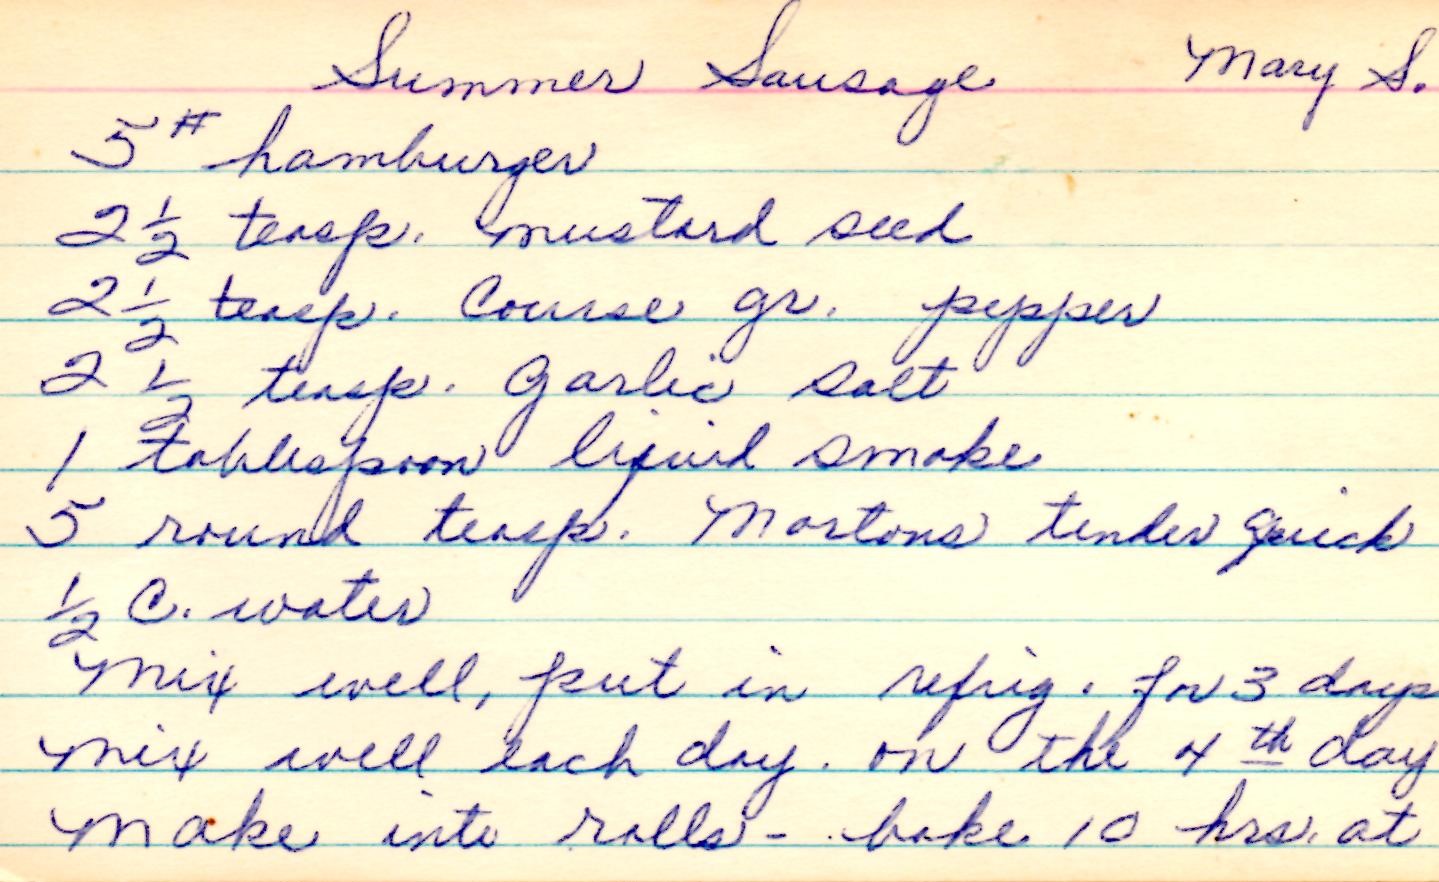 Summer Sausage Mary S.
5# hamburger
2 1/2 teasp. mustard seed
2 1/2 teasp. Course gr. pepper
2 1/2 teasp. Garlic salt
1 tablespoon liquid smoke
5 round teasp. Mortons tender quick
1/2 C. water
Mix well, put in refrig. for 3 days
mix well each day. on the 4th day
Make into rolls - bake 10 hrs. at